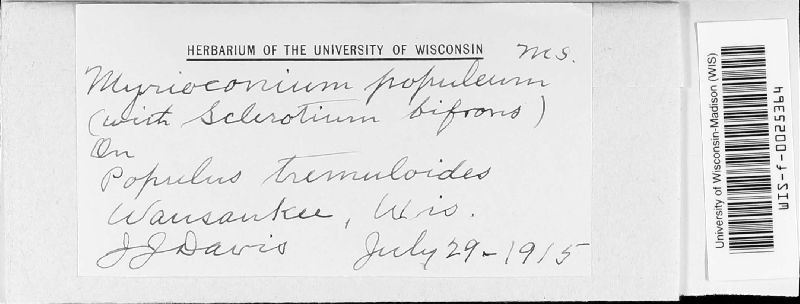 HERBARIUM OF THE UNIVERSITY OF WISCONSIN
Ms.
Myrioconium populeum
(with Sclerotium bifrons)
On
Populus tremuloides
Wausaukee, Wis.
J J Davis July 29-1915
University of Wisconsin-Madison (WIS)
WIS-f-0025364